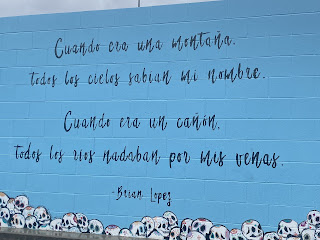 Cuando era una montaña.
todos los cielos sabian mi nombre.
Cuando era un cañón.
todos los rios nadaban por mis venas.
-Brian Lopez